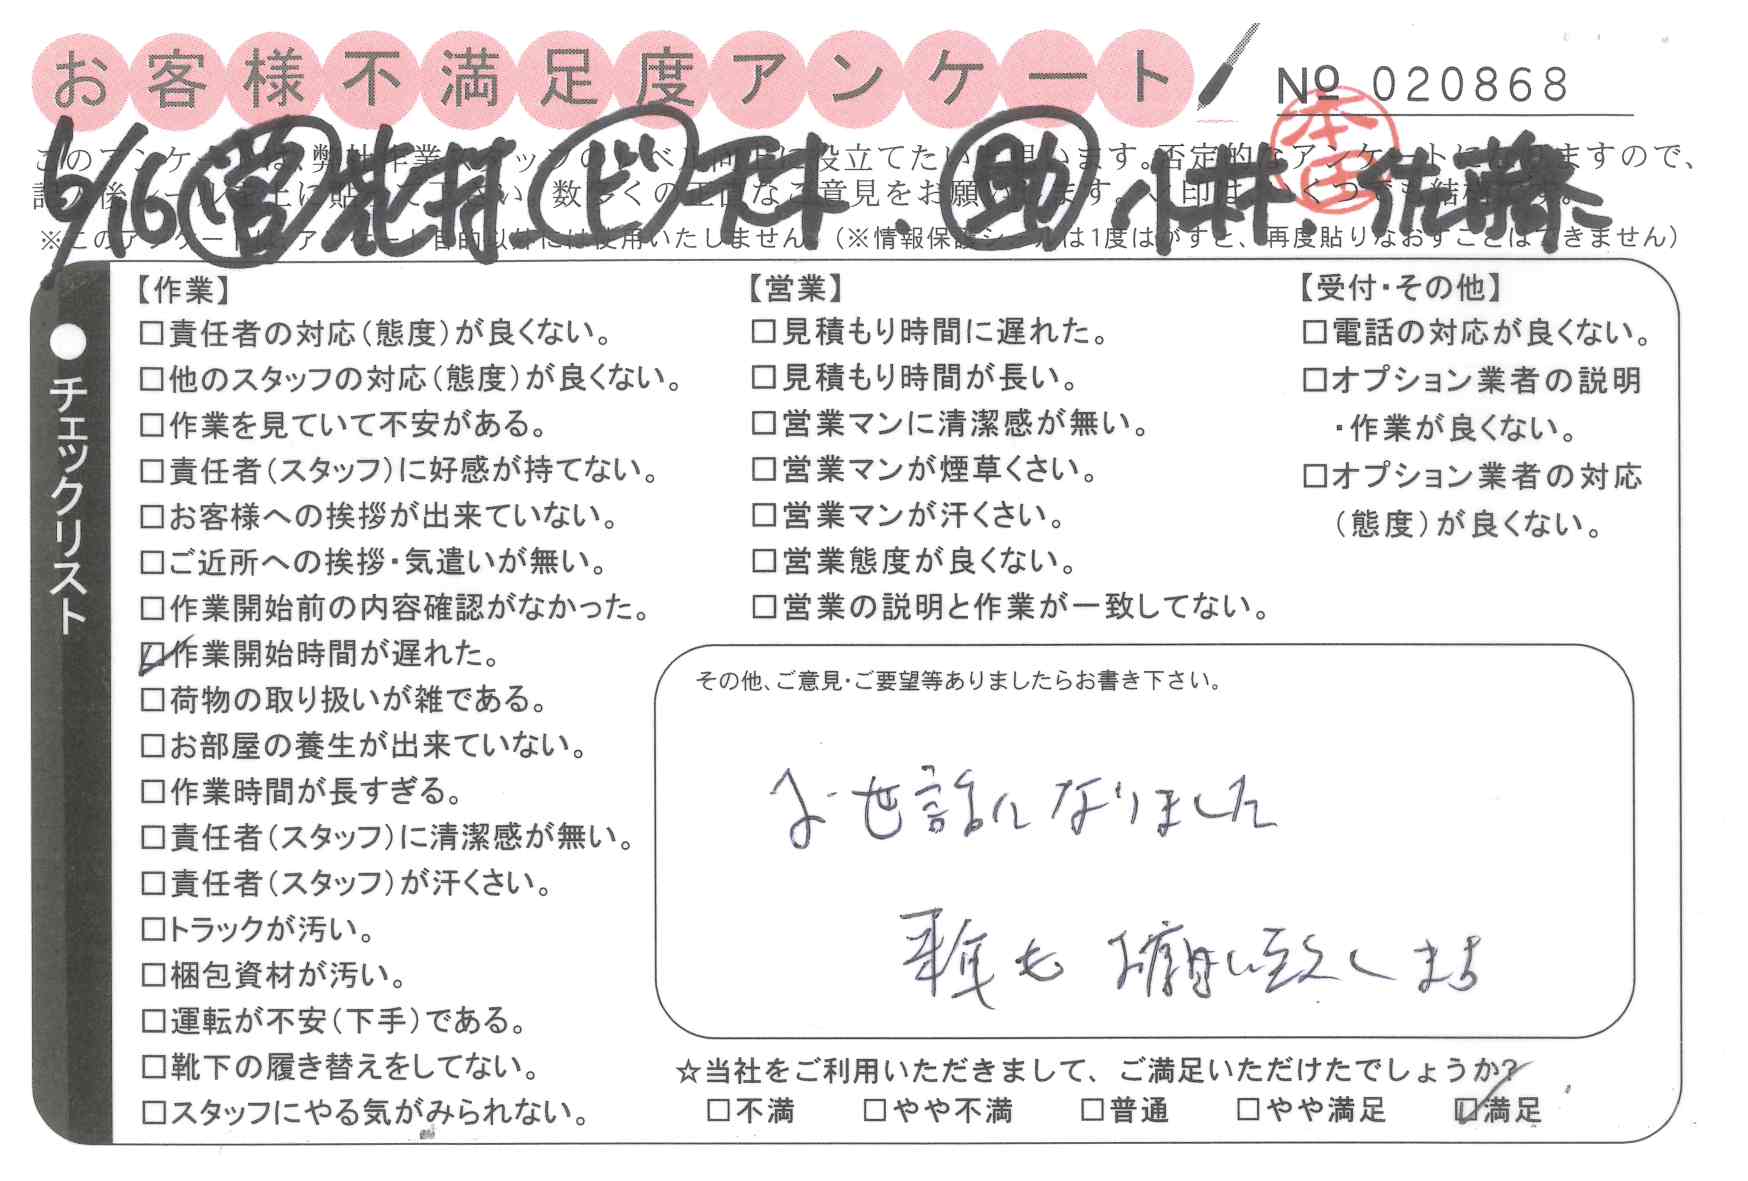 お客様不満足度アンケート
No 020868
本田
6/16 営 荒村 ビ 天本、助 小林、佐藤こ
このアンケートは、弊社作業スタッフのレベル向上に役立てたいと思います。否定的なアンケートになりますので、
記入後シールを上に貼って下さい。数多くの正直なご意見をお願い致します。〆印はいくつでも結構です。
※このアンケートは、アンケート目的以外には使用いたしません。(※情報保護シールは1度はがすと、再度貼りなおすことはできません)
チェックリスト
【作業】
□責任者の対応(態度)が良くない。
□他のスタッフの対応(態度)が良くない。
□作業を見ていて不安がある。
□責任者(スタッフ)に好感が持てない。
□お客様への挨拶が出来ていない。
□ご近所への挨拶・気遣いが無い。
□作業開始前の内容確認がなかった。
☑作業開始時間が遅れた。
□荷物の取り扱いが雑である。
□お部屋の養生が出来ていない。
□作業時間が長すぎる。
□責任者(スタッフ)に清潔感が無い。
□責任者(スタッフ)が汗くさい。
□トラックが汚い。
□梱包資材が汚い。
□運転が不安(下手)である。
□靴下の履き替えをしてない。
□スタッフにやる気がみられない。
【営業】
□見積もり時間に遅れた。
□見積もり時間が長い。
□営業マンに清潔感が無い。
□営業マンが煙草くさい。
□営業マンが汗くさい。
□営業態度が良くない。
□営業の説明と作業が一致してない。
【受付・その他】
□電話の対応が良くない。
□オプション業者の説明
・作業が良くない。
□オプション業者の対応
(態度)が良くない。
その他、ご意見・ご要望等ありましたらお書き下さい。
お世話になりました
来年も お願い致します
☆当社をご利用いただきまして、ご満足いただけたでしょうか?
□不満 □やや不満 □普通 □やや満足 ☑満足